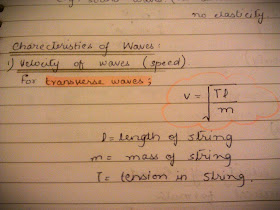 no elasticity
Characteristics of Waves:
1) Velocity of waves (speed)
For transverse waves;
v = √(Tl/m)
l = length of string
m = mass of string
T = tension in string.